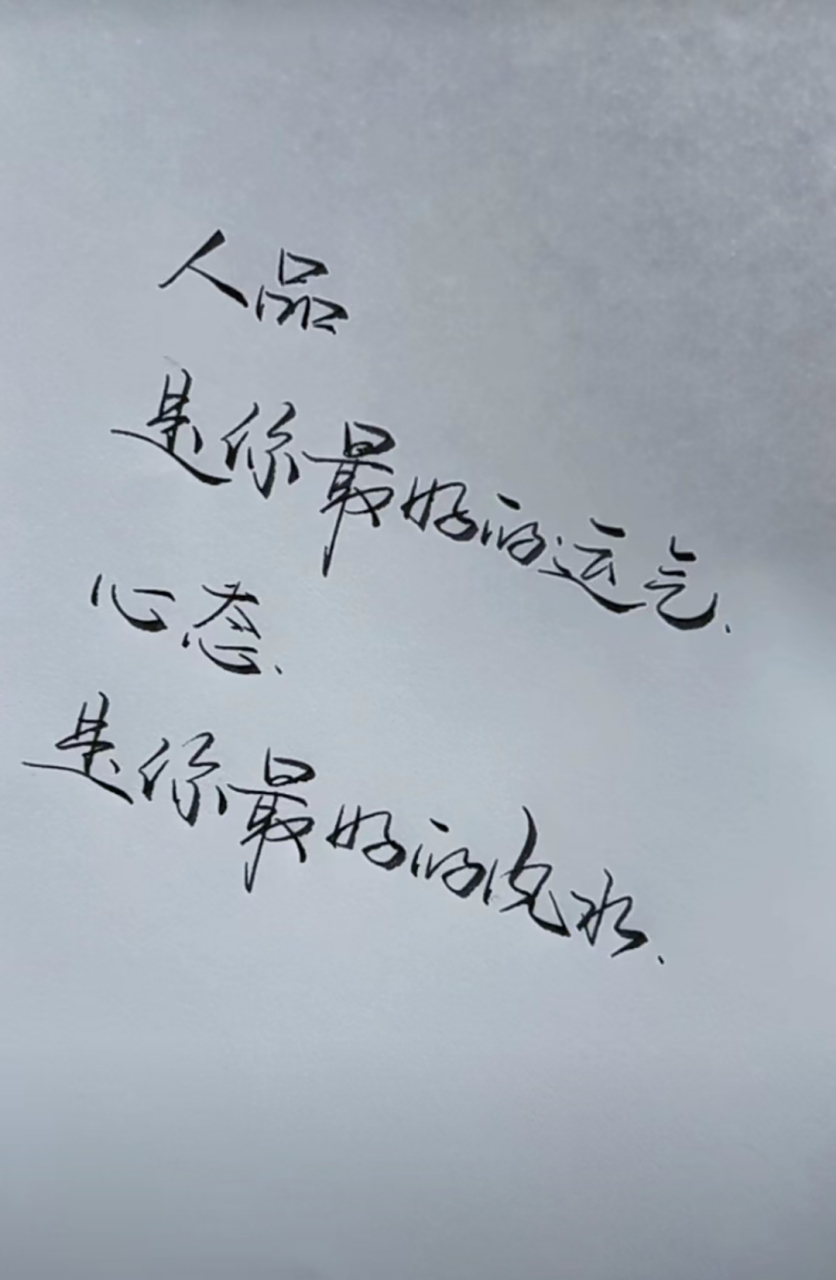 人品
是你最好的运气.
心态.
是你最好的风水.